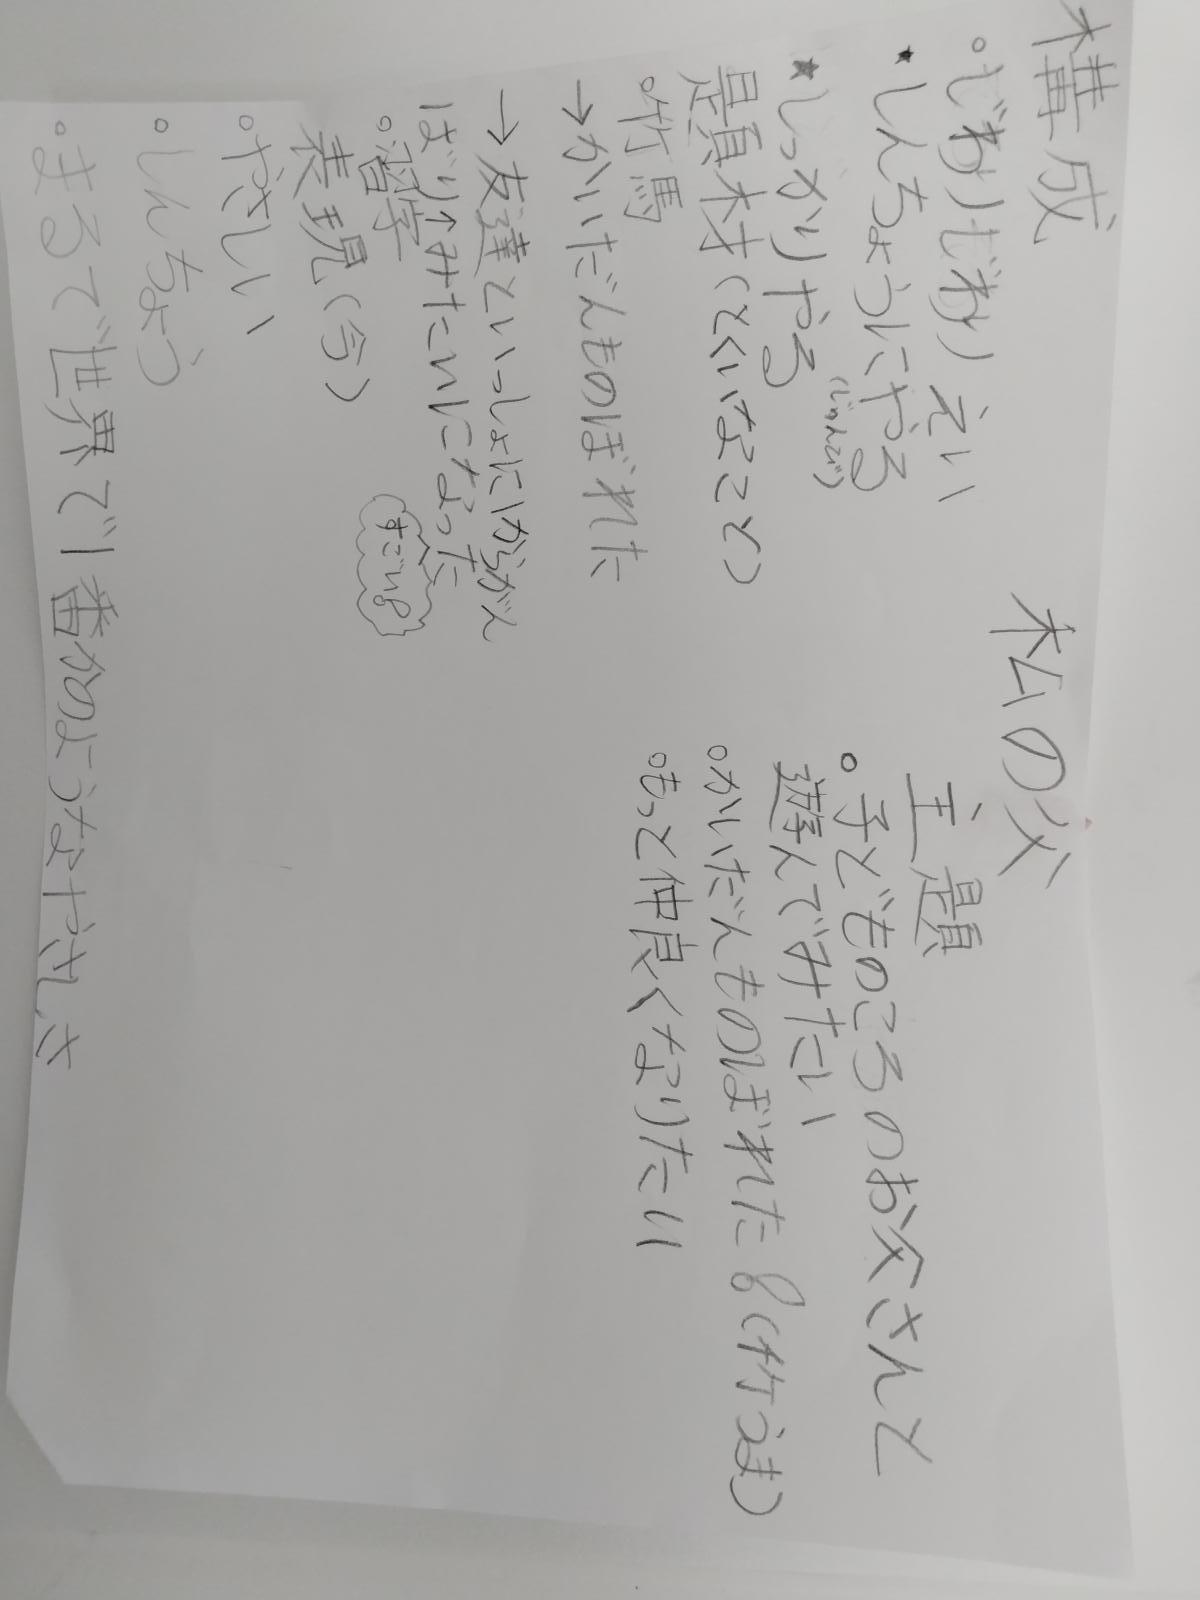 私の父
構成
・じわりじわり えい
★しんちょうにやる
(じゅんび)
★しっかりやる
題材(とくいなこと)
・竹馬
→かいだんものぼれた
→友達といっしょにしからがん
ばり↑みたいになった
すごい。
・習字
表現(今)
・やさしい
・しんちょう
・まるで世界で1番かのようなやさしさ
主題
・子どものころのお父さんと
遊んでみたい
・かいだんものぼれた。(竹うま)
・もっと仲良くなりたい